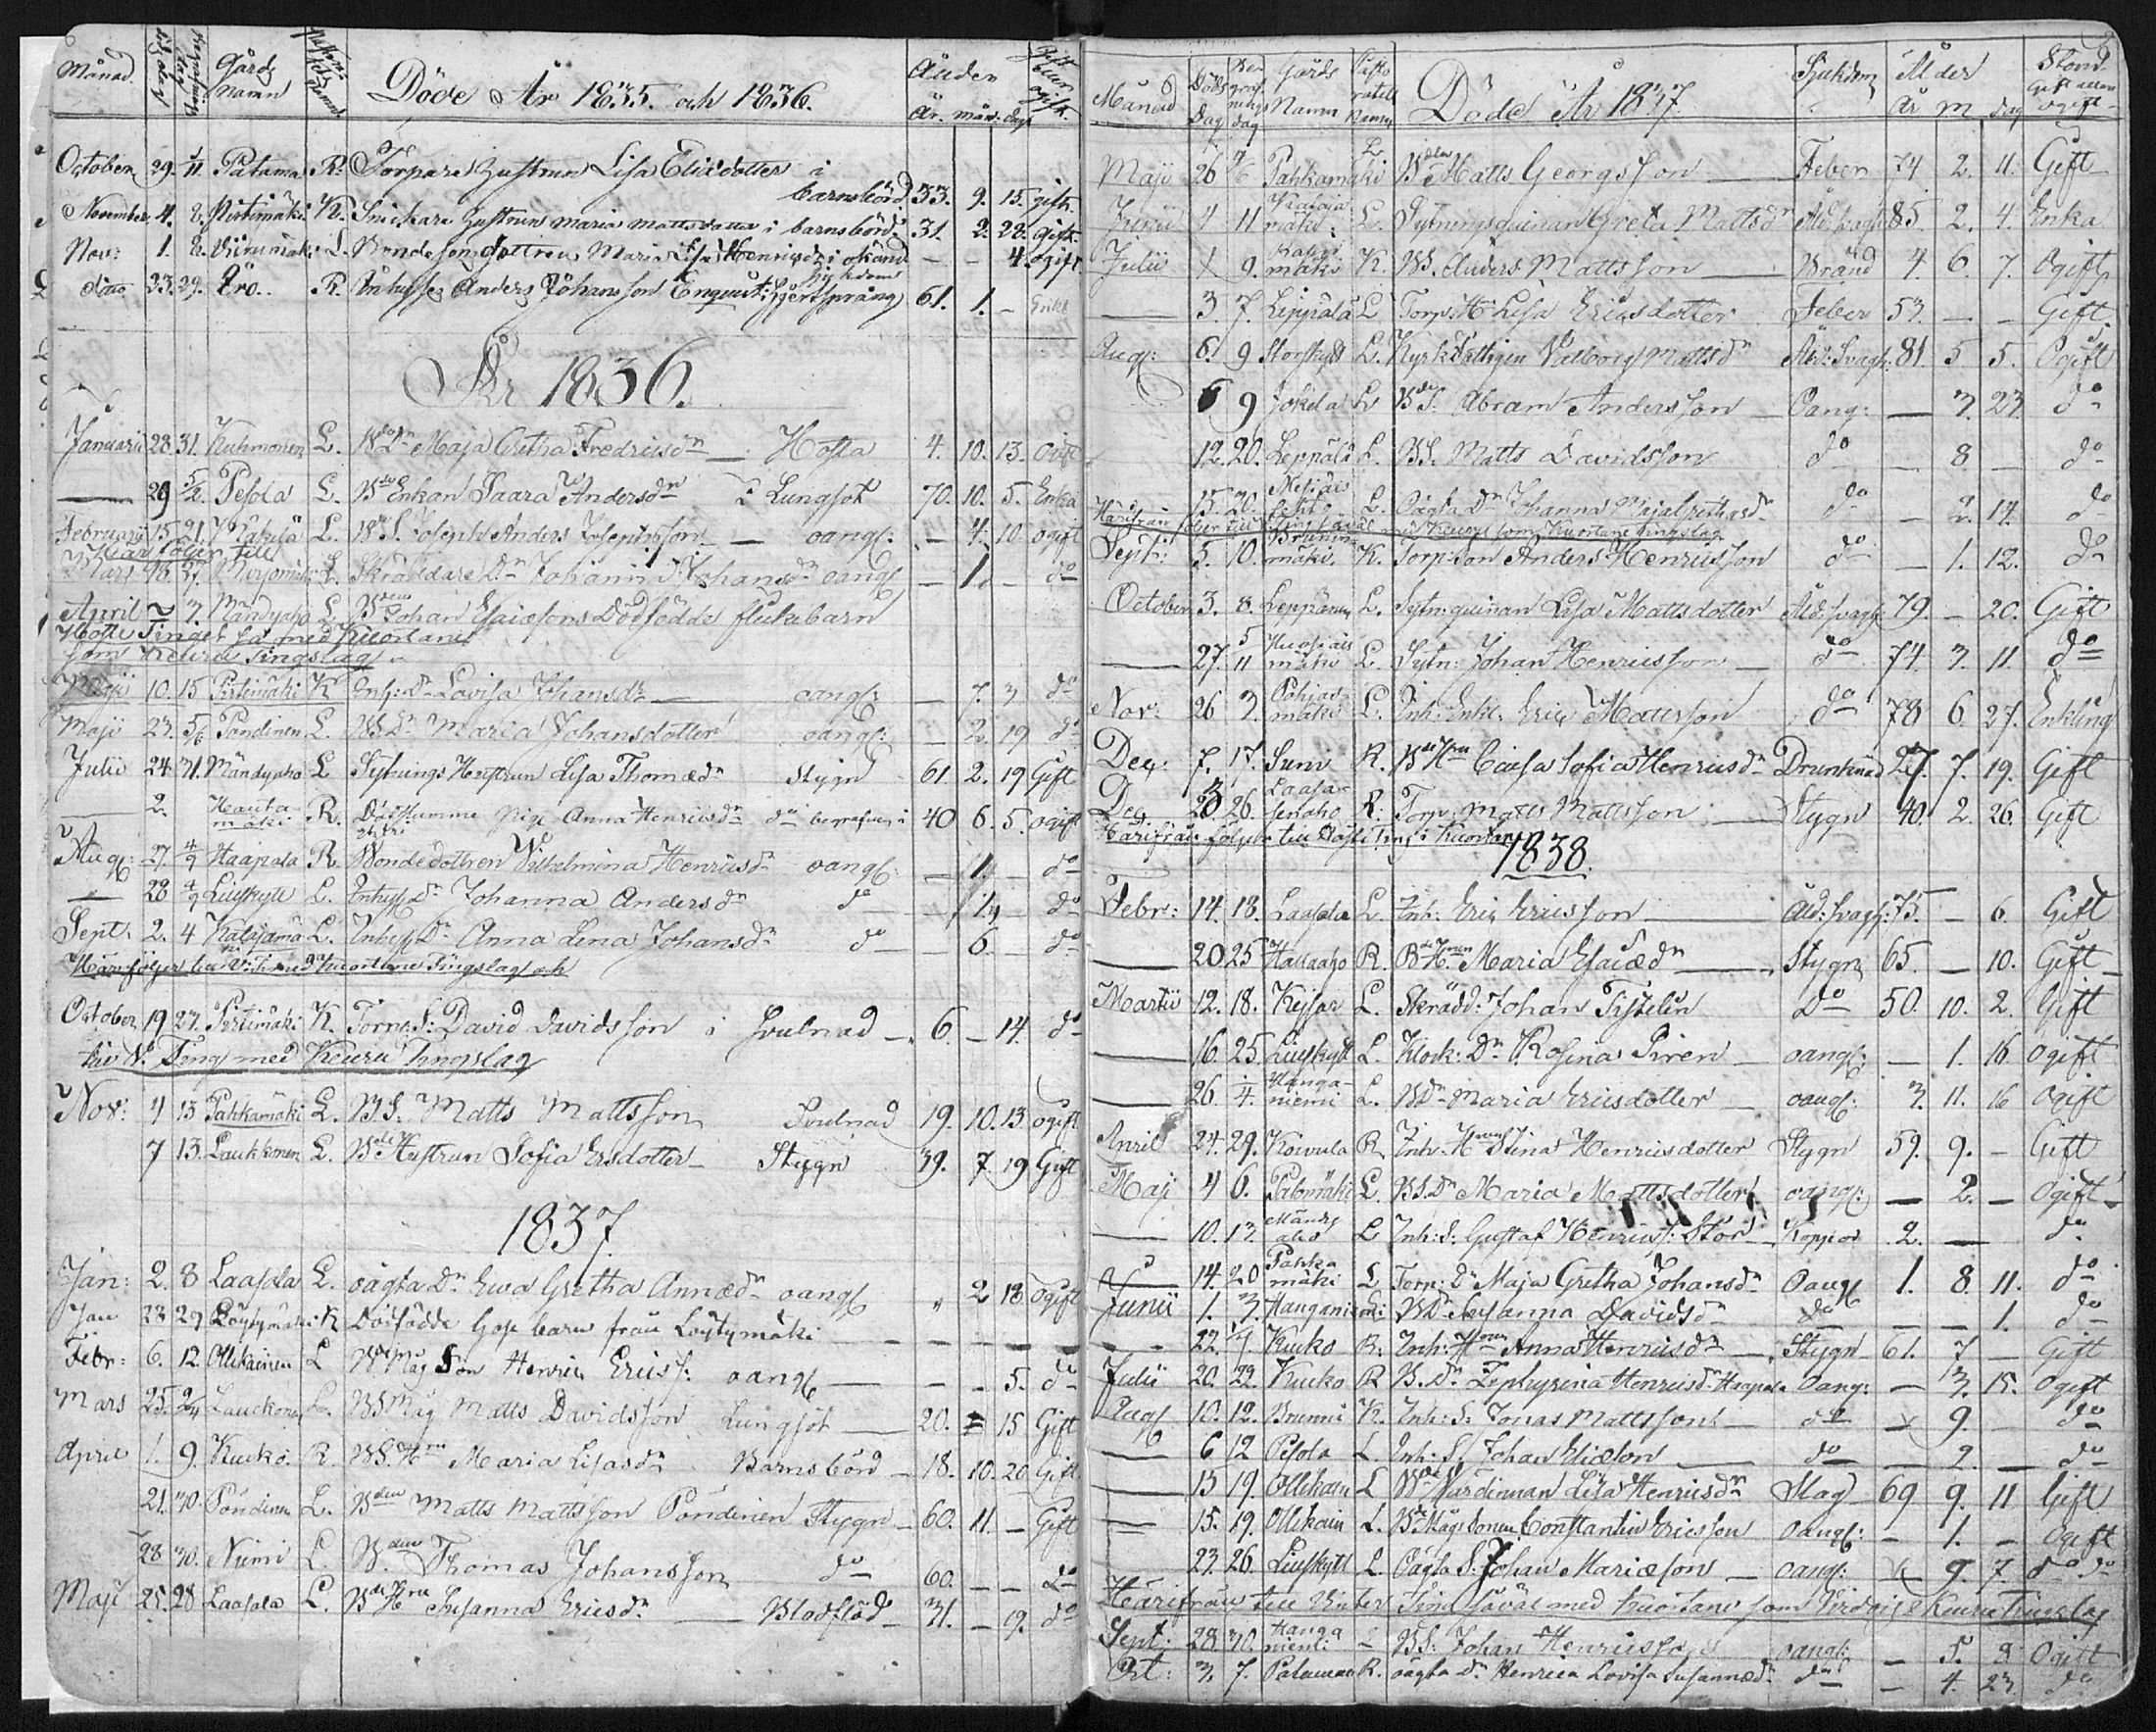 Månad. Döds dag Begrafnings dag Gårds namn Döde År 1835. och 1836. Ålder År. mån. dag Gift eller ogift.
October 29. 1/11 Patama R. Torpare Hustrun Lisa Eliædotter i
barnsbörd. 33. 9. 15. gift.
November 4. 8. Pirttimäki K. Snickare Hustrun Maria Mattsdotter i barnsbörd. 31. 2. 22. gift.
Nov: 1. 8. L. Bondesonsdottren Maria Lisa Henricsdr i okänd — — 4. ogift.
sjukdom
ditto 23. 29. Äro.. R. Inhyses Anders Johansson Enquist; 61. 1. – Enkl
År 1836.
Januarii 28. 31. Kuhmonen L. Bde Dn Maja Gretha Fredricsdn — Hosta 4. 10. 13. ogift
— 29 5/2. Pesola L. Bde Enkan Saara Andersdn i Lungsot 70. 10. 5. Enka
Februarii 15. 21. Mäkelä L. S. Joseph Anders Josephsson — oangf: – 4. 10. ogift
Här följer till
Mars 16. 27. L. Skräddare Dn Johanna Johansdn oangf – 1. – do
April 3. Mändyaho L. Bden Johan Esaiæsons Dödfödde flickebarn
Höste Tinget så med Kuortane
som Keuru Tingslag.
Maji 10. 15 Pirtimäki K Inh: Dn Lovisa Johansdr — oangf: – 7. 3 do
Maji 23. 5/6 Pöndinen L. BS Dn Maria Johansdotter oangf: – 2. 19 do
Julii 24. 31. Mändyaho L Sytnings Hustrun Lisa Thomædn Stygn 61. 2. 19 Gift
— 2. Hautamäki R. Döfstumme Pige Anna Henricsdn do begrafven i 40 6. 5. ogift
Aug: 27. 4/9 Haapala R. Bondedottren Vilhelmina Henricsdn oangf: – 1. – do
— 28 4/9 Liufkytt L. Inhyss Dn Johanna Andersdn do – 1. – do
Sept: 2. 4 Katajamä- ki L. Inhyss Dn Anna Lena Johansdn do – 6. – do
Härifr följer till V: Ti med Kuortane Tingslag och
October 19 27. Pirtimäki K. Torp: S: David Davidsson i Svulnad – 6. – 14. do
till V. Ting med Keuru Tingslag
Nov: 4 13 Pahkamäki L. B.S. Matts Mattsson Svulnad 19. 10. 13. ogift
7 13. Laukkonen L. Bde Hustrun Sofia Ersdotter – Stygn 39. 7. 19 Gift
1837.
Jan: 2. 8 Laasola L. oägta Dn Ewa Gretha Annædn oangf „ 2 18. Ogift
Jan 28 29 Löytymäki K Dödfödde Gosse barn från Löytymäki – – – –
Febr: 6. 12. Ollikainen L Bde Måg Son Henric Ericss: oangf — – – 5. do
Mars 25. 2/4 Lauckonen L. BS Måg Matts Davidsson Lungsot — 20. 15 Gift
April 1. 9. Kuckо. R. BS. Hru Maria Lisasdn Barnsbörd – 18. 10. 20 Gift.
21. 30. Pöndinen L. Bden Matts Mattsson Pöndinen Stygn – 60. 11. – Gift
28 30. Niemi L. Bden Thomas Johansson do 60. – – do
Maji 25. 28 Laasola L. Bde Hru Susanna Ericsdn — Blodflöd – 31. – 19. do
Månad Döds Dag Begrafnings dag Gårds Namn Döde År 1837. Sjukdom Ålder År m dag Stånd Gift eller ogift
Maji 26 4/6 Pahkamäki L Bden Matts Georgsson — Feber 74. 2. 11. Gift
Junii 4 11 Katajamäki L. Sytningsquinnan Greta Mattsdr Åld: svagh: 85. 2. 4. Enka
Julii 1 9. mäki K. BS. Anders Mattsson — Bränd 4. 6. 7. Ogift
— 3. 7. Leppälä L Torp: H Lisa Ericsdotter Feber 53. – – Gift
Aug: 6. 9 Storskytt L. Kyrkofattigen Valborg Mattsdn Åld: svagh: 81. 5 5. Ogift
6 9 Jokela L BdeS: Abram Andersson – Oang: – 3. 23. do
12. 20. Leppälä L. BS. Matts Davidsson do – 8 – do
15. 20. L. Oägta Dn Johanna Majagrethasdn do – 2. 14. do
Härifrån följer till H: Ting såväl med Keuru som Kuortane tingslag
Sept: 5. 10. Brunni mäki. K. Torp: son Anders Henricsson do – 1. 12. do
October 3. 8. Leppänen L. Sytn: quinnan Lisa Mattsdotter Åld: svagh: 79. – 20. Gift
— 27. 5/11 mäki L. Sytn: Johan Henricsson — do 74. 3. 11. do
Nov: 26 3. Pohjasmäki L. Inh: Enkl: Eric Mattsson do 78 6. 27. Enkling
Dec: 7. 17. Suni R. Bde Hru Caisa Sofia Henricsdn Drunknad 27. 7. 19. Gift
Dec. 23 26. Laasasenaho R: Torp: Matts Mattsson — Stygn 40. 2. 26. Gift
Härifrån följer till Höste Ting i Kuortane
1838.
Febr: 14. 18. Laasola L. Inh: Eric Ericsson — Åld: svagh: 75. – 6. Gift
— 20 25 Hallaaho R. Bde Hrun Maria Esaiædn — Stygn 65. – 10. Gift –
Martii 12. 18. Keisar L. Skrädd: Johan Tistelin Do 50. 10. 2. Gift
— 16. 25. Liufkytt L. Klock: Dn Rosina Siren – oangf: – 1. 16. Ogift
— 26. 1/4. Hanganiemi L. BDn Maria Ericsdotter – oangf: 3. 11. 16 Ogift
April 24. 29. Koivula R Inh: Hrun Stina Henricsdotter Stygn 59. 9. – Gift
Maj 4 6. Palomäki L. BS. Dn Maria Mattsdotter oangf: – 2. – Ogift –
— 10. 13. Mändyaho L Inh: S: Gustaf Henricss: Stör – Koppor 2. — do
— 14. 20 Pahkamäki L Torp: Dn Maja Gretha Johansdn Oangf 1. 8. 11. do
Junii 1. 3. Hanganiemi: BDn Susanna Davidsdn do — – 1. do
— 22. Kucko R. Inh: Hrun Anna Henricsdn — Stygn 61. 7 – Gift
Julii 20. 22. Kucko R B. Dn Zephyrina Henricsdn Haapala Oang: – 3. 15. Ogift
Aug 10. 12. Brunni K. Inh: S: Jonas Mattsson — do – 9. – do
— 6 12 Pesola L. Inh: S. Johan Eliæson — do – 9. – do
— 13 19. Ollikain L Bde Värdinnan Lisa Henricsdn Slag 69 9. 11 Gift
— 15. 19. Ollikain L. Bde Mågs Sonen Constantin Ericsson Oangf: – 1. – Ogift
— 23. 26. Liufkytt L. Oägta S. Johan Mariæson — oangf: – 9. 7. do
Härifrån till Vinter Ting såväl med Kuortane som Virdois & Keuru Tingslag
Sept: 28 30. Hanganiemi: L BS: Johan Henricsson oangf: – 5. 3. Ogift
Oct: 3. 7. Pataman R. oägta Dn Henrica Lovisa Susannædn do – 4. 23. do